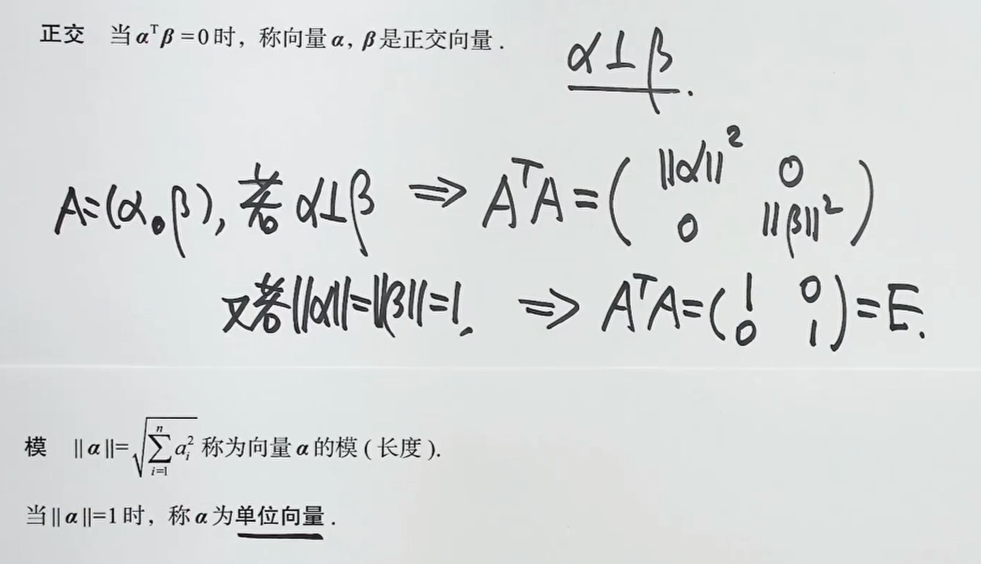 正交 当αᵀβ=0时，称向量α, β是正交向量.
α⊥β.
A=(α,β), 若α⊥β ⇒ AᵀA=(‖α‖² 0
0 ‖β‖²)
又若‖α‖=‖β‖=1, ⇒ AᵀA=(1 0
0 1)=E.
模 ‖α‖=√(∑ᵢ₌₁ⁿ aᵢ²) 称为向量α的模(长度).
当‖α‖=1时，称α为单位向量.